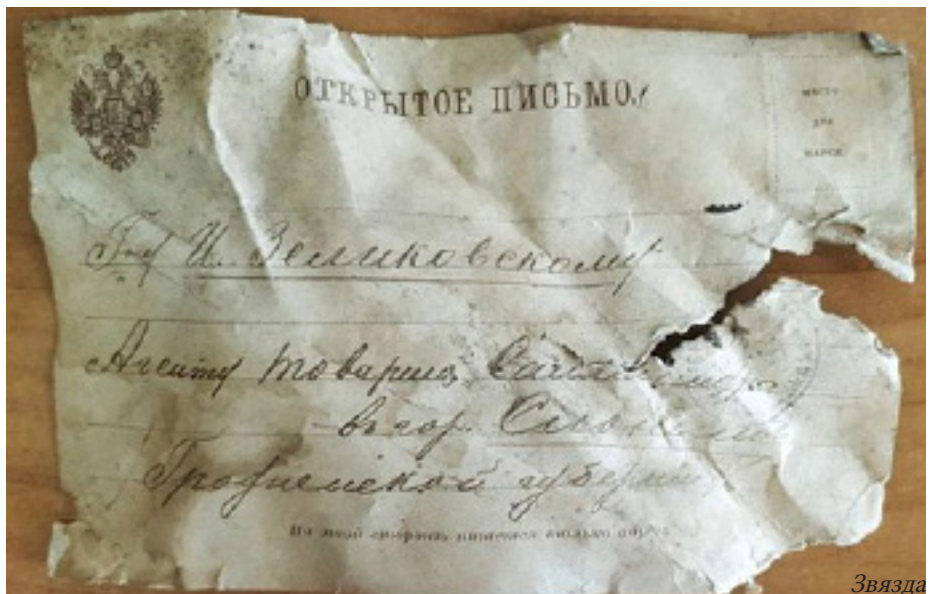 ОТКРЫТОЕ ПИСЬМО.
МѢСТО
ДЛЯ
МАРКИ.
Г-ну И. Зеликовскому
Агенту товарищ.
въ гор. Слонимъ
Гродненской губернiи
На этой сторонѣ пишется только адресъ.
Звязда